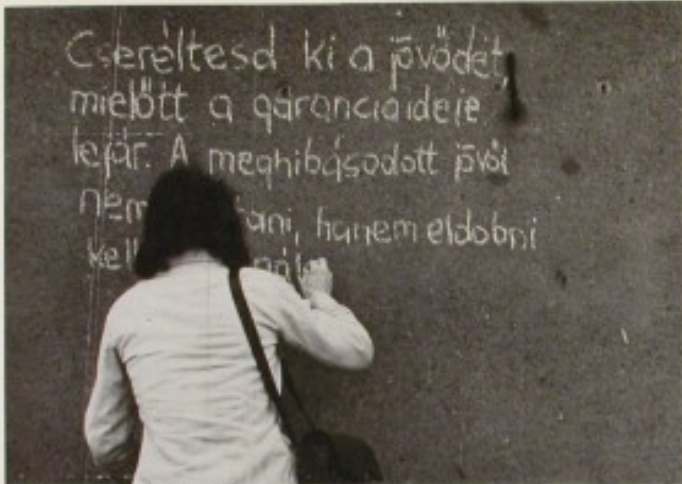 Cseréltesd ki a jövődet,
mielőtt a garanciaideje
lejár. A meghibásodott jövőt
nem hanem eldobni
kell